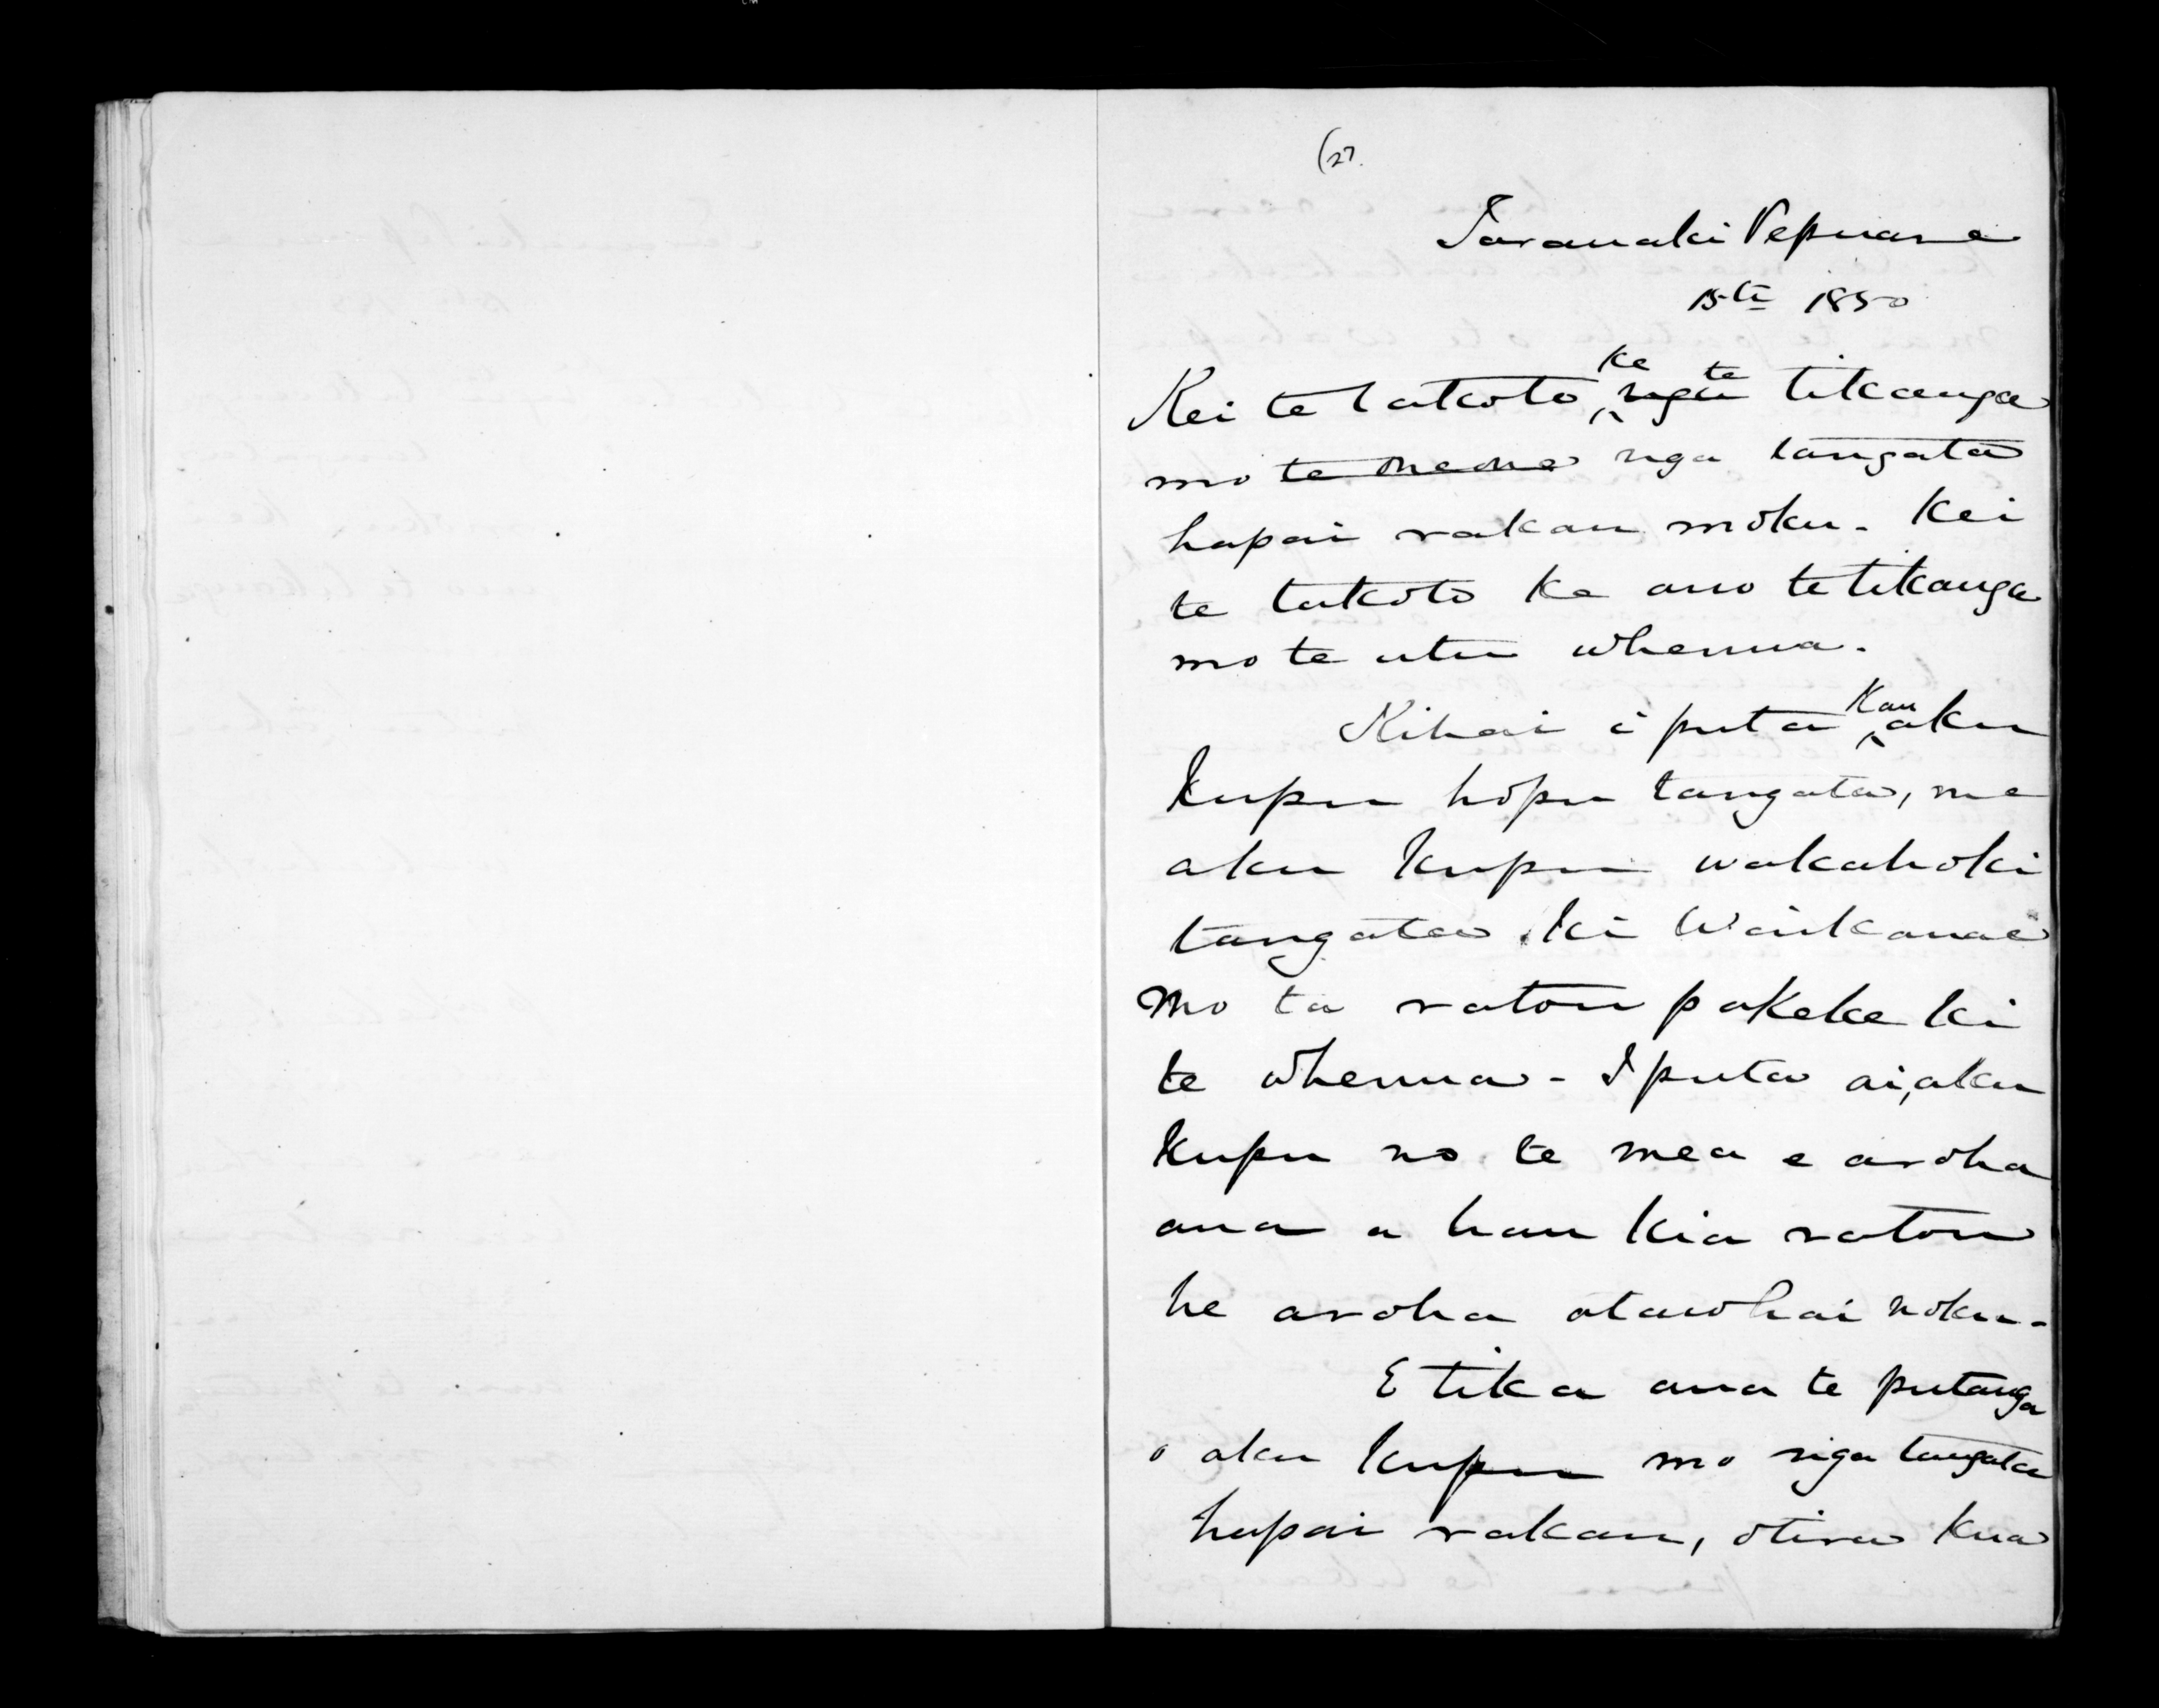 (27.
Taranaki Pepuare
15th 1850
Kei te takoto ke nga te tikanga
mo te meme nga tangata
hapai rakau moku. Kei
te takoto ke ano te tikanga
mo te utu whenua.
Kihai i puta kau aku
kupu hopu tangata, me
aku kupu wakahoki
tangata ki Waikanae
mo ta ratou pakeke ki
te whenua - I puta ai, aku
kupu no te mea e aroha
ana a hau kia ratou
he aroha atawhai noku.
E tika ana te putanga
o aku kupu mo nga tangata
hapai rakau, otira kua